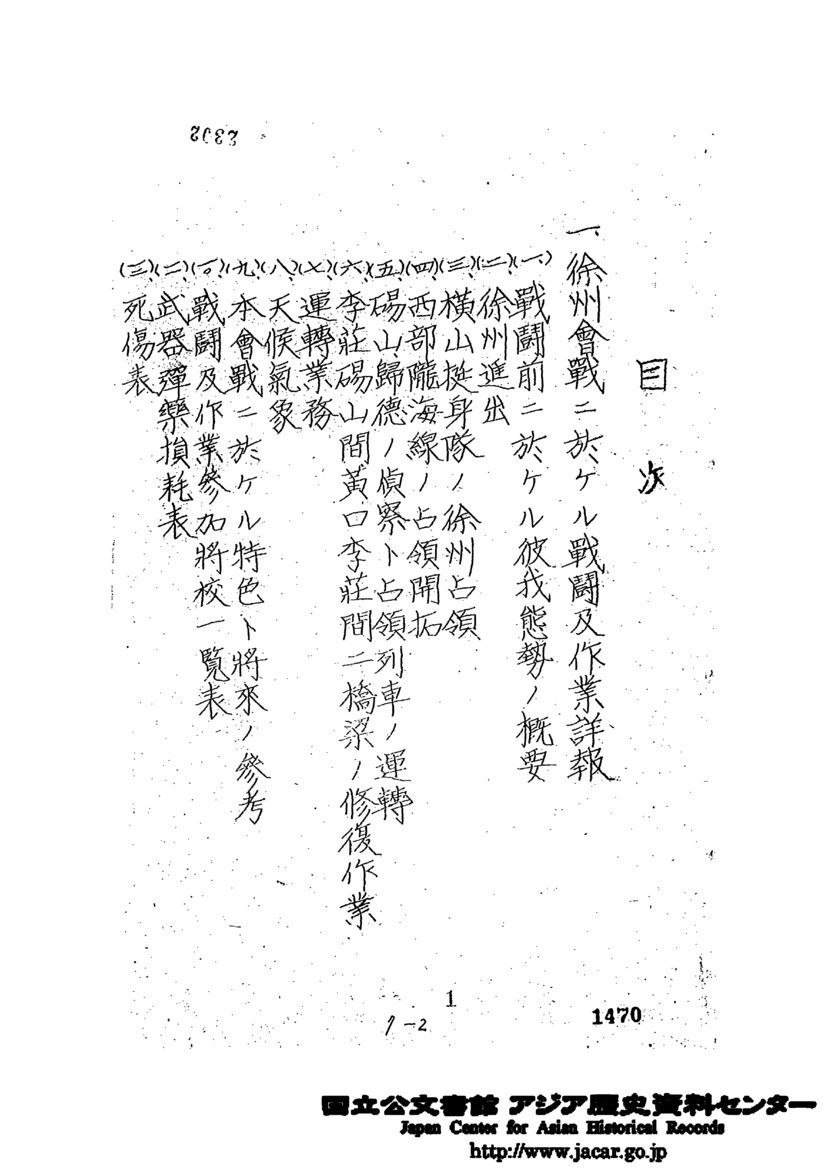 2302
目次
一、徐州會戰ニ於ケル戰鬪及作業詳報
(一)、戰鬪前ニ於ケル彼我態勢ノ概要
(二)、徐州進出
(三)、橫山挺身隊ノ徐州占領
(四)、西部隴海線ノ占領開拓
(五)、碭山歸德ノ偵察ト占領列車ノ運轉
(六)、李莊碭山間黃口李莊間ニ橋梁ノ修復作業
(七)、運轉業務
(八)、天候氣象
(九)、本會戰ニ於ケル特色ト將來ノ參考
(一〇)、戰鬪及作業參加將校一覧表
(二)、武器彈藥損耗表
(三)、死傷表
1
1-2
1470
国立公文書館 アジア歴史資料センター
Japan Center for Asian Historical Records
http://www.jacar.go.jp